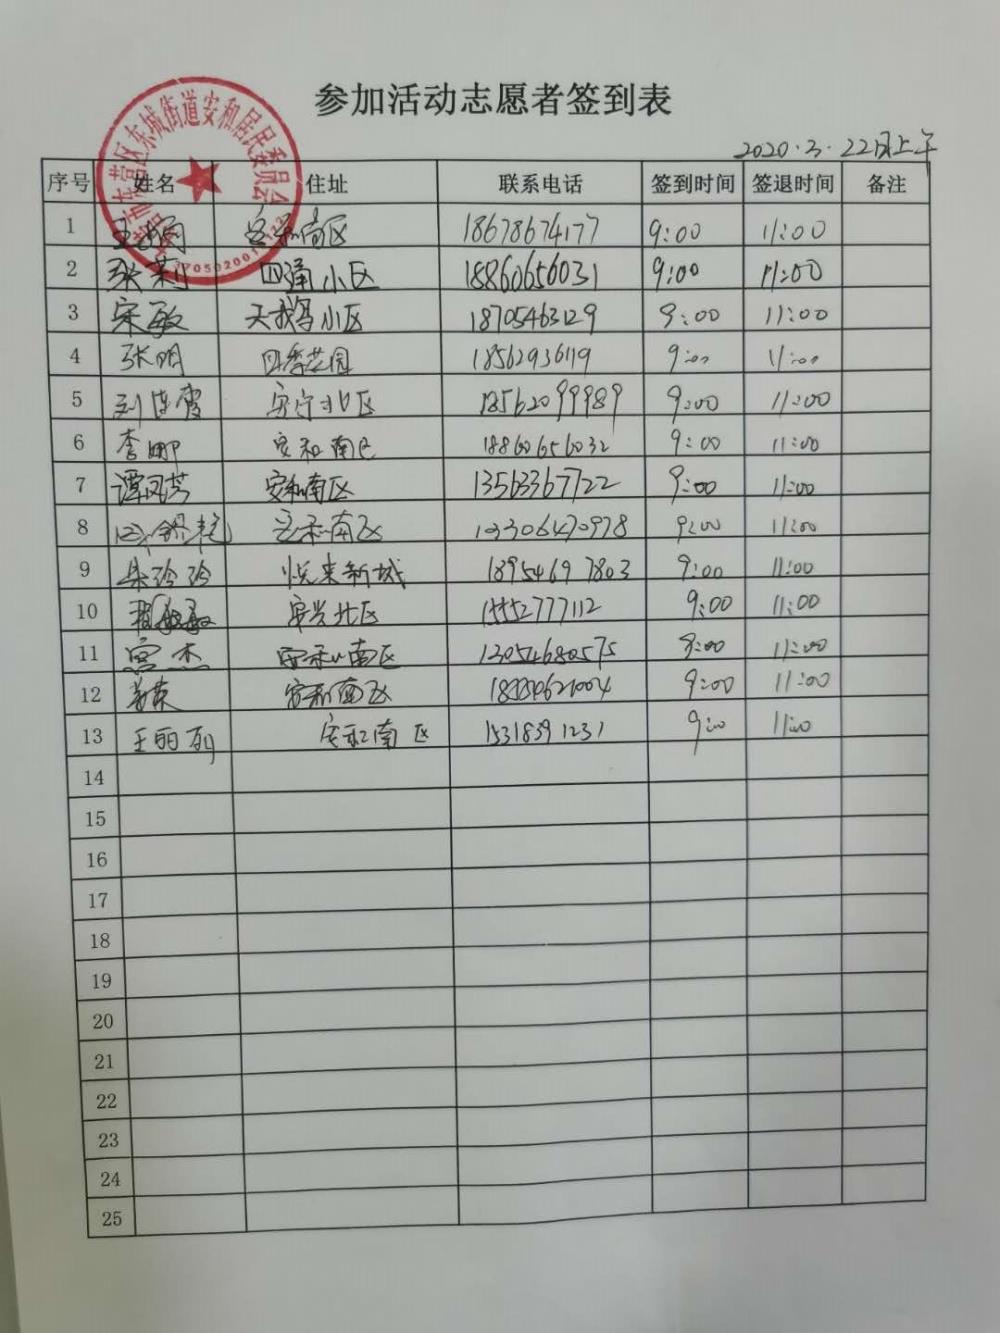 参加活动志愿者签到表
2020.3.22日上午
东营区东城街道安和居民委员会
序号 姓名 住址 联系电话 签到时间 签退时间 备注
1 安和南区 18678674177 9:00 11:00
2 张莉 四通小区 18860656031 9:00 11:00
3 宋敏 天鹅小区 18705463129 9:00 11:00
4 张明 四季花园 18562936119 9:00 11:00
5 刘连霞 安宁北区 18562099989 9:00 11:00
6 李娜 安和南区 18860656032 9:00 11:00
7 谭凤芳 安和南区 13563367722 9:00 11:00
8 安和南区 13306470978 9:00 11:00
9 朱玲玲 悦来新城 18954697803 9:00 11:00
10 安兴北区 15552777112 9:00 11:00
11 宫杰 安和南区 13054680575 9:00 11:00
12 安和南区 9:00 11:00
13 王丽 安和南区 15318391231 9:00 11:00
14
15
16
17
18
19
20
21
22
23
24
25